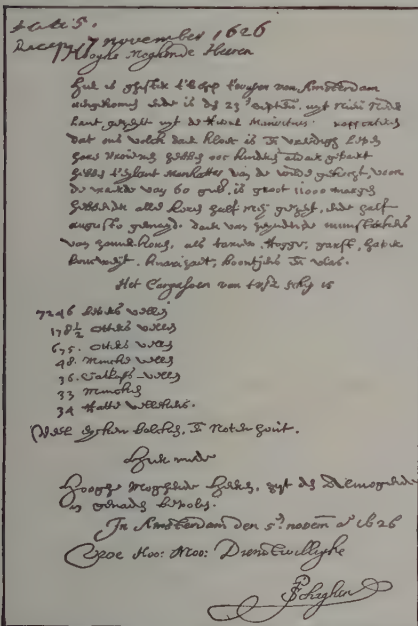 Recep. 7 november 1626
Hooghe Moghende Heeren
Hier is ghister t'schip t'wapen van Amsterdam
aengekomen ende is den 23en septem. uyt Nieu Nede
lant gezeylt uyt de rivier Mauritius. rapporteren
dat ons volck daer kloec is en vreedigh leven
hare vrouwen hebben oock kinderen aldaer gebaert
hebben t'eylant Manhattes van de wilde gekocht, voor
de waerde van 60 guld. is groot 11000 morgen
hebbende alle koren half mey gezeyt, ende half
augusto gemayd. daer van zeynden munsterkens
van zomerkoren, als tarwe, rogge, garst, haver
bouckweyt, knarizaet, boontjens en vlas.
Het Cargasoen van tvsz schip is
7246 bevers vellen
178½ otters vellen
675. otters vellen
48. mincke vellen
36. Catloes vellen
33 mincken
34 Ratte vellekens.
Veel eycken balcken, en Noten hout.
Hier mede
Hooghe Moghende Heeren, zyt den Almogende
in genade bevolen.
In Amsterdam den 5en novem ao 1626
Uwe Hoo: Moo: Dienstwillighe
P Schaghen